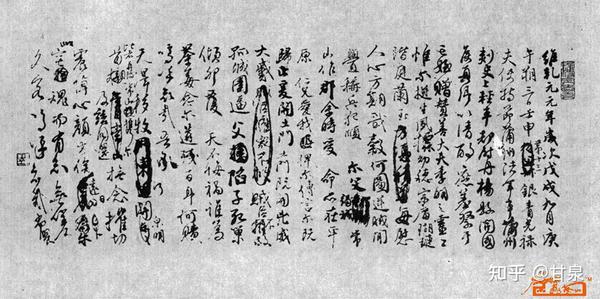 維乾元元年歲次戊戌九月庚
午朔三日壬申第十三叔銀青光祿
夫使持節蒲州諸軍事蒲州
刺史上輕車都尉丹楊縣開國
侯真卿以清酌庶羞祭于
亡姪贈贊善大夫季明之靈曰
惟爾挺生夙標幼德宗廟瑚璉
階庭蘭玉每慰
人心方期戩穀何圖逆賊閒
釁稱兵犯順爾父竭誠常
山作郡余時受命亦在平
原仁兄愛我俾爾傳言爾既
歸止爰開土門土門既開凶威
大蹙賊臣不救
孤城圍逼父陷子死巢
傾卵覆天不悔禍誰為
荼毒念爾遘殘百身何贖
嗚呼哀哉吾承
天澤移牧河關泉明
比者再陷常山攜爾
首櫬及茲同還撫念摧切
震悼心顏方俟遠日卜爾
幽宅魂而有知無嗟
久客嗚呼哀哉尚饗
知乎 @甘泉